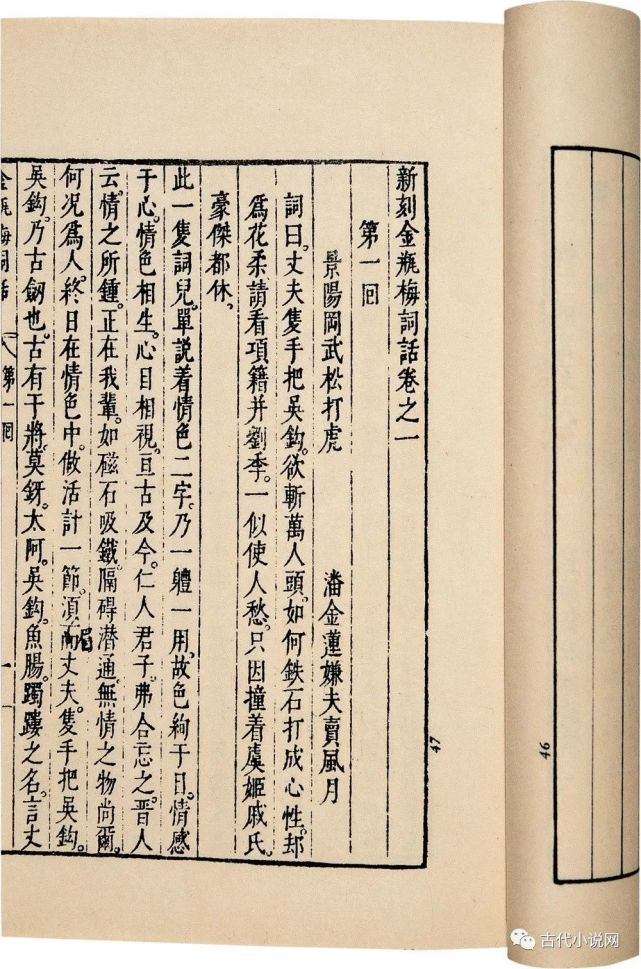 新刻金瓶梅詞話卷之一
第一回
景陽岡武松打虎　潘金蓮嫌夫賣風月
詞曰。丈夫隻手把吳鈎。欲斬萬人頭。如何鉄石打成心性。却
爲花柔。請看項籍并劉季。一似使人愁。只因撞着虞姬戚氏。
豪傑都休、
此一隻詞兒。單說着情色二字。乃一體一用。故色絢于目。情感
于心。情色相生。心目相視。亘古及今。仁人君子。弗合忘之。晋人
云。情之所鍾。正在我輩。如磁石吸鐵。隔碍潜通。無情之物尚爾。
何况爲人。終日在情色中。做活計一節。須而丈夫。隻手把吳鈎。
吳鈎。乃古劔也。古有干將。莫釾。太阿。吳鈎。魚腸。躅䠱之名。言丈
金瓶梅詞話　第一回　一
47
46
古代小说网